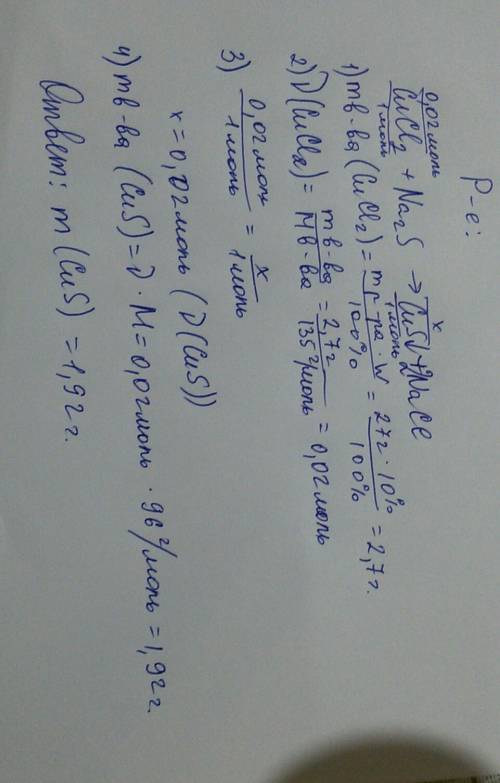 Р-е:
0,02моль x
CuCl₂ + Na₂S → CuS↓ + 2NaCl
1моль 1моль
1) mв-ва (CuCl₂) = mр-ра · W / 100% = 27г · 10% / 100% = 2,7г.
2) ν(CuCl₂) = mв-ва / Mв-ва = 2,7г / 135г/моль = 0,02моль
3) 0,02моль / 1моль = x / 1моль
x = 0,02моль (ν(CuS))
4) mв-ва (CuS) = ν · M = 0,02моль · 96г/моль = 1,92г.
Ответ: m (CuS) = 1,92г.